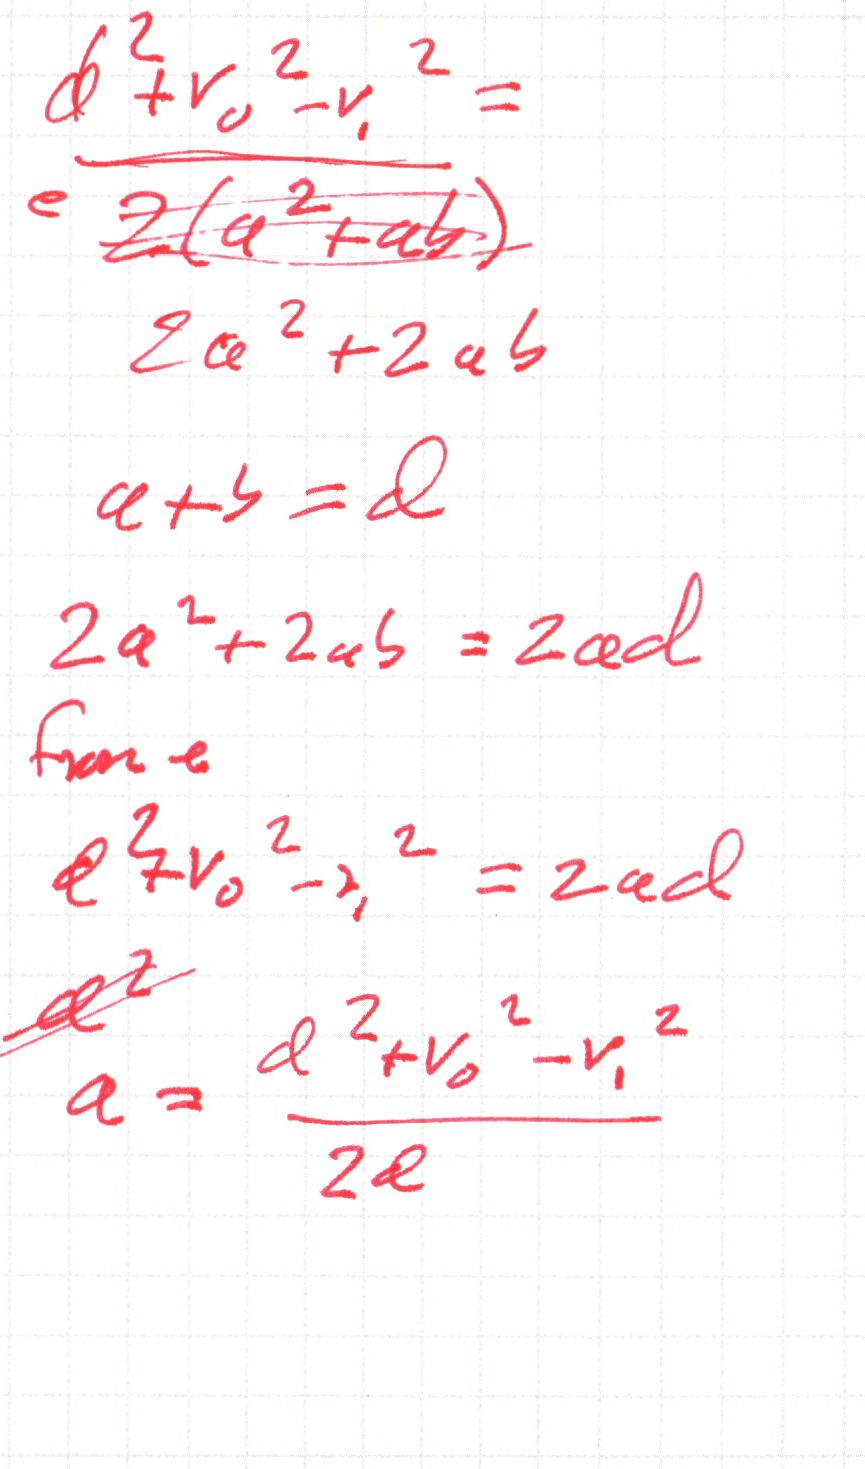 d² + r₀² - r₁² =
e 2(a² + ab)
2a² + 2ab
a + b = d
2a² + 2ab = 2ad
from e
d² + r₀² - r₁² = 2ad
a²
a = d² + r₀² - r₁² / 2d